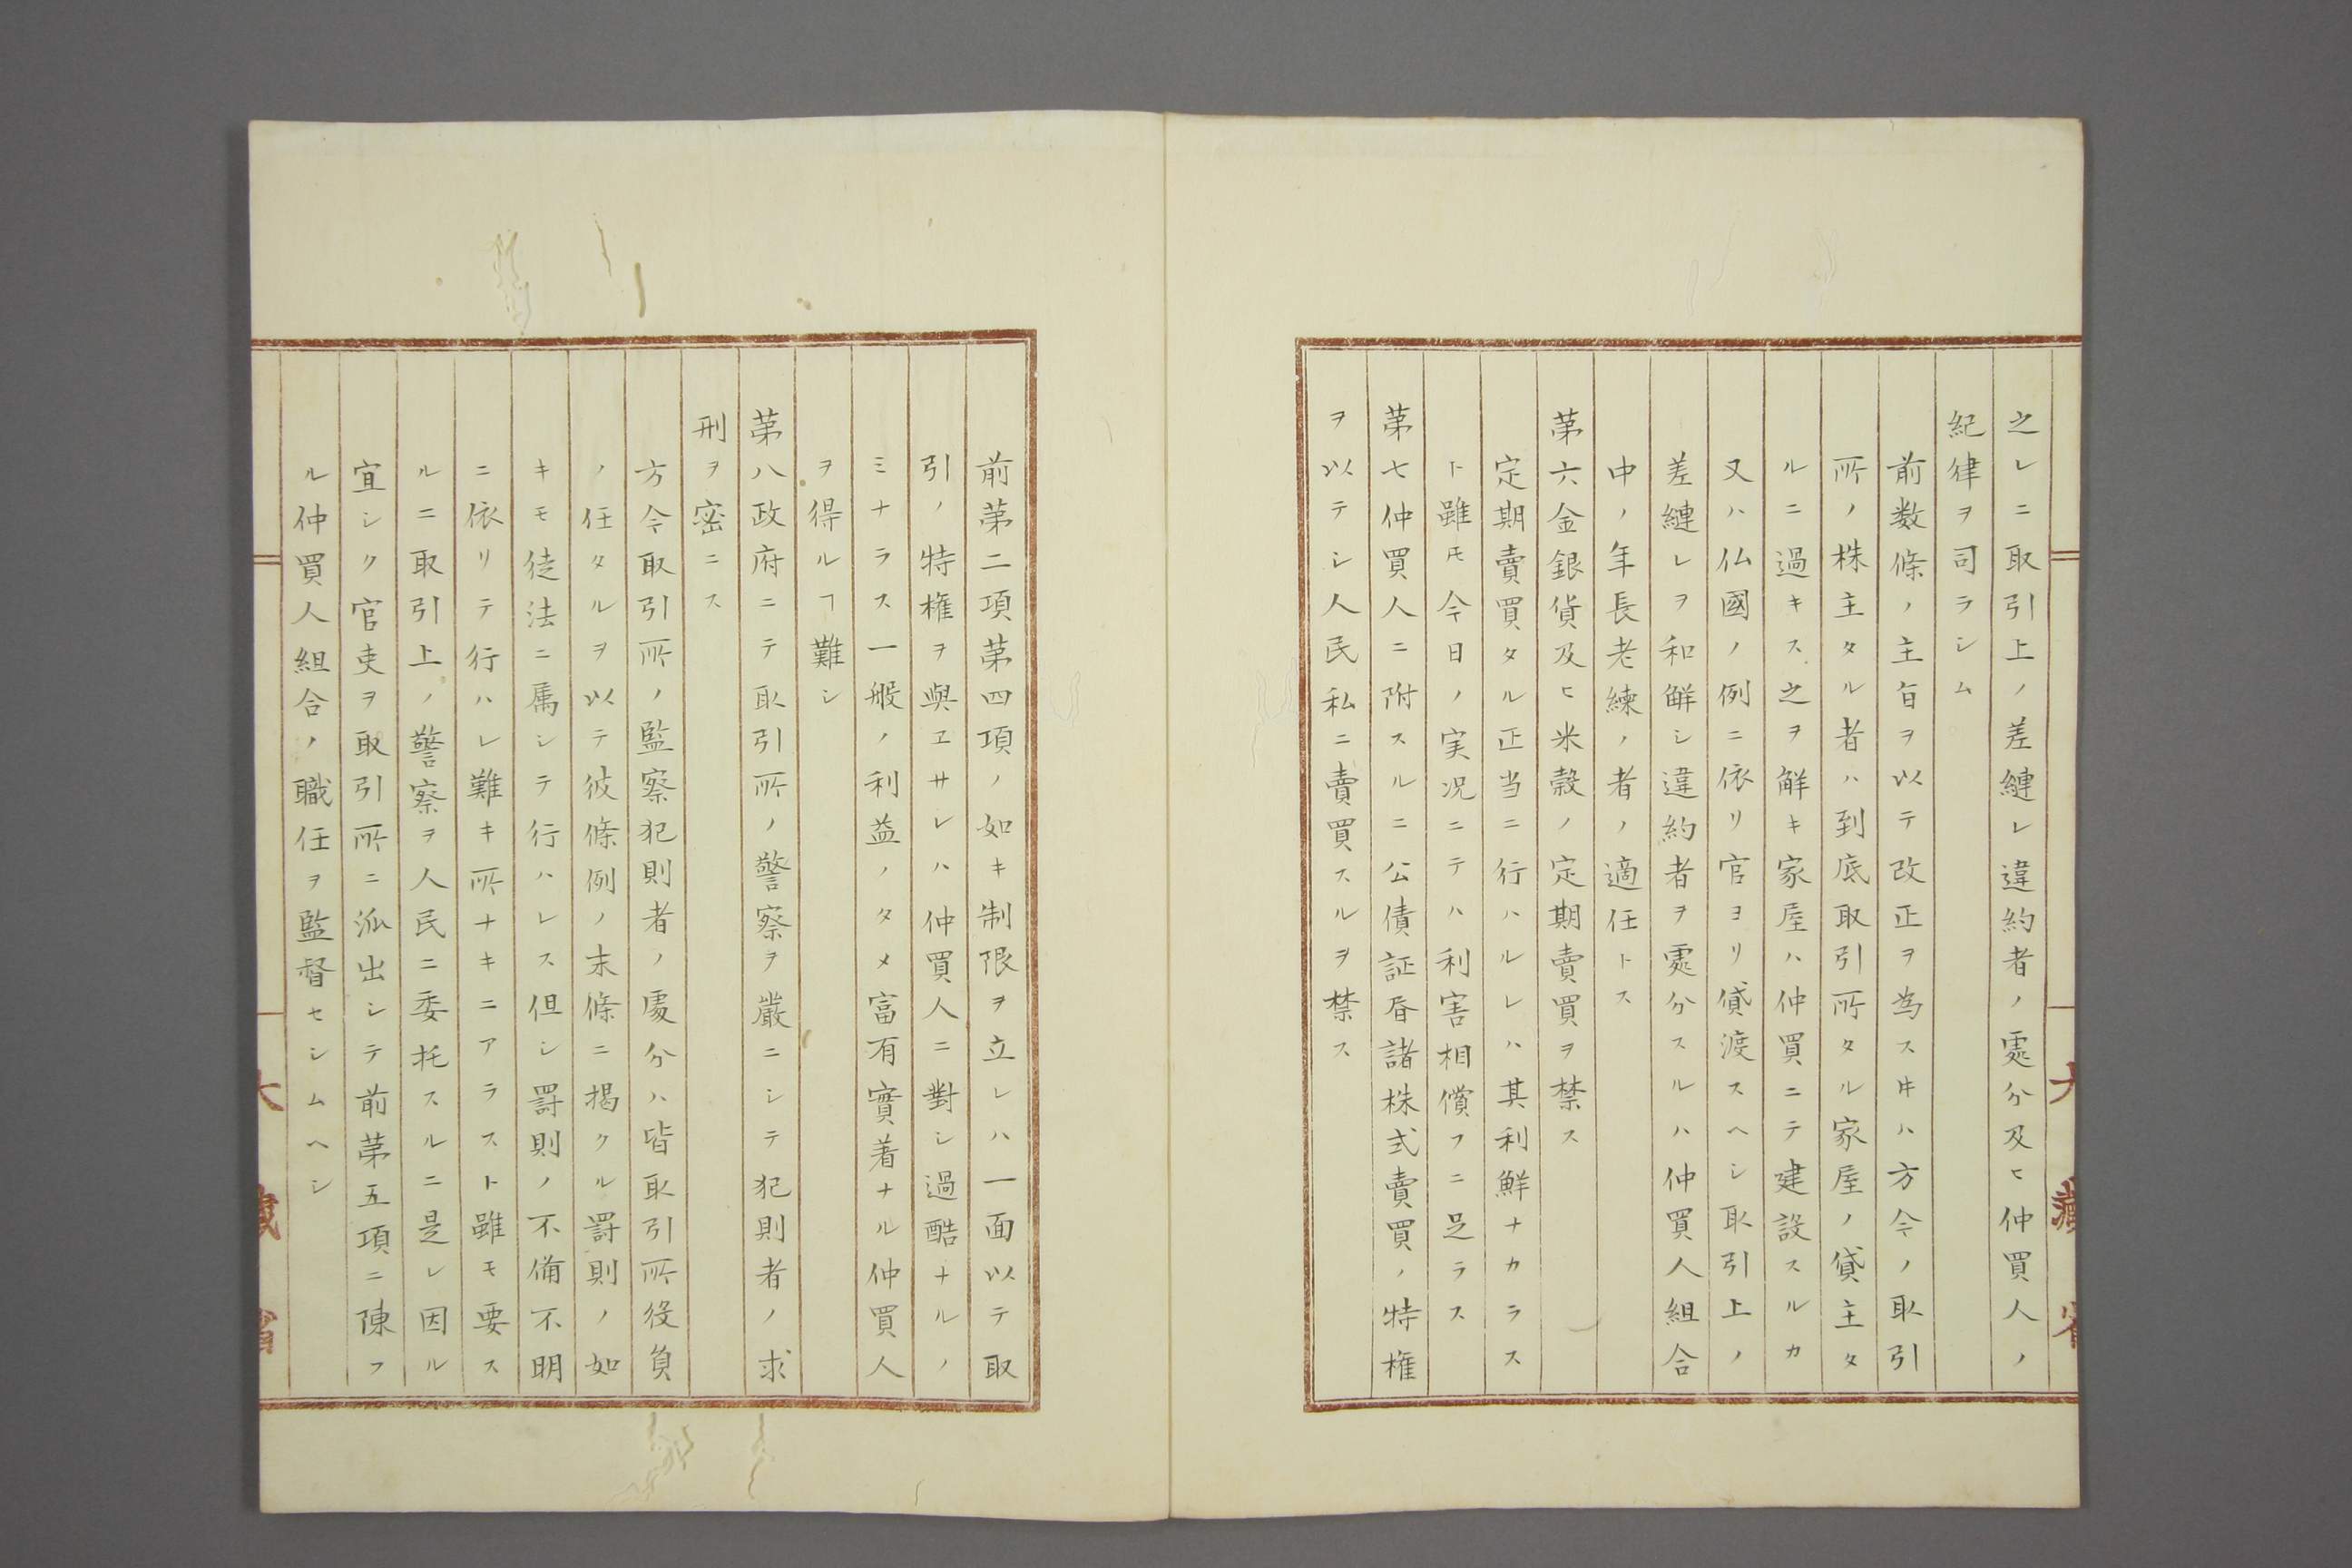 之レニ取引上ノ差縺レ違約者ノ處分及ヒ仲買人ノ
紀律ヲ司ラシム
前数條ノ主旨ヲ以テ改正ヲ為スヰハ方今ノ取引
所ノ株主タル者ハ到底取引所タル家屋ノ貸主タ
ルニ過キス之ヲ解キ家屋ハ仲買ニテ建設スルカ
又ハ仏國ノ例ニ依リ官ヨリ貸渡スヘシ取引上ノ
差縺レヲ和解シ違約者ヲ處分スルハ仲買人組合
中ノ年長老練ノ者ノ適任トス
第六金銀貨及ヒ米穀ノ定期賣買ヲ禁ス
定期賣買タル正当ニ行ハルレハ其利鮮ナカラス
ト雖𪜈今日ノ実况ニテハ利害相償フニ足ラス
第七仲買人ニ附スルニ公債証昏諸株式賣買ノ特権
ヲ以テシ人民私ニ賣買スルヲ禁ス
前第二項第四項ノ如キ制限ヲ立レハ一面以テ取
引ノ特権ヲ與ヱサレハ仲買人ニ對シ過酷ナルノ
ミナラス一般ノ利益ノタメ富有實着ナル仲買人
ヲ得ルヿ難シ
第八政府ニテ取引所ノ警察ヲ嚴ニシテ犯則者ノ求
刑ヲ密ニス
方今取引所ノ監察犯則者ノ處分ハ皆取引所役負
ノ任タルヲ以テ彼條例ノ末條ニ掲クル罰則ノ如
キモ徒法ニ属シテ行ハレス但シ罰則ノ不備不明
ニ依リテ行ハレ難キ所ナキニアラスト雖モ要ス
ルニ取引上ノ警察ヲ人民ニ委托スルニ是レ因ル
宜シク官吏ヲ取引所ニ派出シテ前第五項ニ陳フ
ル仲買人組合ノ職任ヲ監督セシムヘシ
大藏省